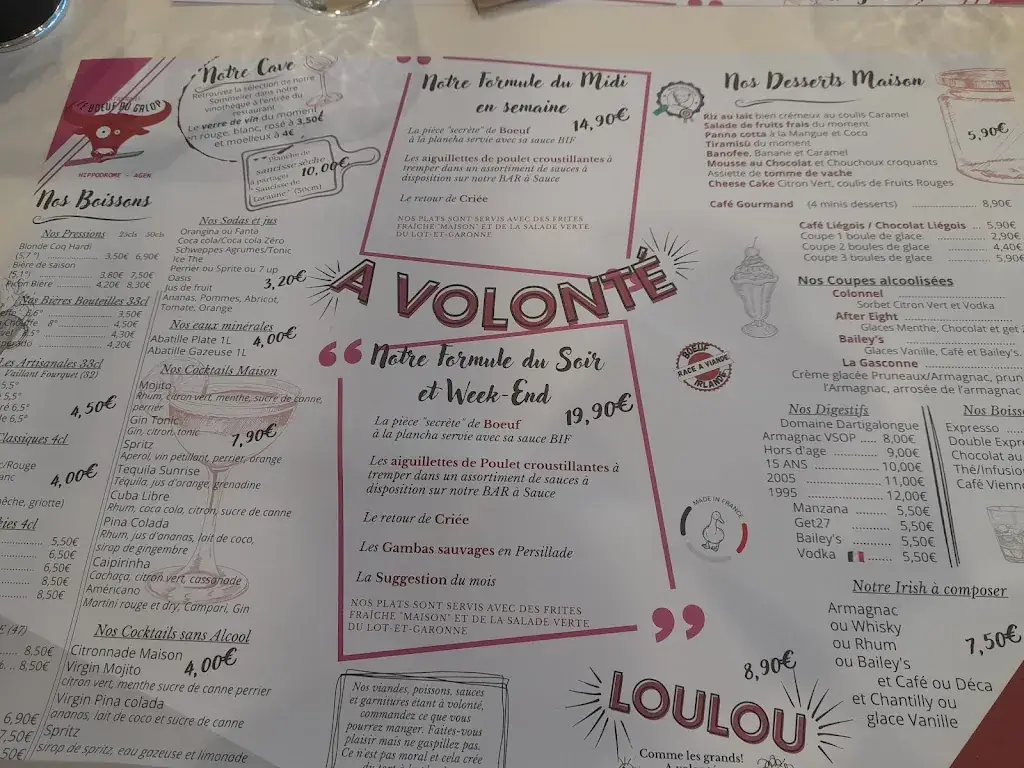 LE BOEUF AU GALOP
HIPPODROME - AGEN
Notre Cave
Retrouvez la sélection de notre
Sommelier dans notre
vinothèque à l'entrée du
restaurant
Le verre de vin du moment
en rouge, blanc, rosé à 3,50€
et moelleux à 4€
planche de
saucisse sèche
à partager
"Saucisse de
Lorraine" (50cm)
10,00€
Nos Boissons
Nos Pressions 25cls 50cls
Blonde Coq Hardi
(5,7°) 3,50€ 6,90€
Bière de saison
(5,1°) 3,80€ 7,50€
Picon Bière 4,20€ 8,30€
Nos Bières Bouteilles 33cl
8,6° 3,50€
8° 4,50€
8,5° 4,30€
4,20€
Les Artisanales 33cl
Vaillant Fourquet (32)
6,5°
6,5°
4,50€
Classiques 4cl
c/Rouge
4,00€
pêche, griotte)
4cl
5,50€
6,50€
6,50€
8,50€
8,50€
(47)
8,50€
8,50€
6,90€
7,50€
Nos Sodas et jus
Orangina ou Fanta
Coca cola/Coca cola Zéro
Schweppes Agrumes/Tonic
Ice The
Perrier ou Sprite ou 7 up
Oasis
Jus de fruit
Ananas, Pommes, Abricot,
Tomate, Orange
3,20€
Nos eaux minérales
Abatille Plate 1L
Abatille Gazeuse 1L
4,00€
Nos Cocktails Maison
Mojito
Rhum, citron vert, menthe, sucre de canne,
perrier
Gin Tonic
Gin, citron, tonic
7,90€
Spritz
Aperol, vin pétillant, perrier, orange
Tequila Sunrise
Téquila, jus d'orange, grenadine
Cuba Libre
Rhum, coca cola, citron, sucre de canne
Pina Colada
Rhum, jus d'ananas, lait de coco,
sirop de gingembre
Caipirinha
Cachaça, citron vert, cassonade
Américano
Martini rouge et dry, Campari, Gin
Nos Cocktails sans Alcool
Citronnade Maison
4,00€
Virgin Mojito
citron vert, menthe sucre de canne perrier
Virgin Pina colada
ananas, lait de coco et sucre de canne
Spritz
sirop de spritz, eau gazeuse et limonade
Notre Formule du Midi
en semaine
14,90€
La pièce "secrète" de Boeuf
à la plancha servie avec sa sauce BIF
Les aiguillettes de poulet croustillantes à
tremper dans un assortiment de sauces à
disposition sur notre BAR à Sauce
Le retour de Criée
NOS PLATS SONT SERVIS AVEC DES FRITES
FRAÎCHE "MAISON" ET DE LA SALADE VERTE
DU LOT-ET-GARONNE
A VOLONTÉ
Notre Formule du Soir
et Week-End
19,90€
La pièce "secrète" de Boeuf
à la plancha servie avec sa sauce BIF
Les aiguillettes de Poulet croustillantes à
tremper dans un assortiment de sauces à
disposition sur notre BAR à Sauce
Le retour de Criée
Les Gambas sauvages en Persillade
La Suggestion du mois
NOS PLATS SONT SERVIS AVEC DES FRITES
FRAÎCHE "MAISON" ET DE LA SALADE VERTE
DU LOT-ET-GARONNE
Nos viandes, poissons, sauces
et garnitures étant à volonté,
commandez ce que vous
pourrez manger. Faites-vous
plaisir mais ne gaspillez pas.
Ce n'est pas moral et cela crée
8,90€
LOULOU
Comme les grands!
BOEUF
RACE A VIANDE
IRLANDE
MADE IN FRANCE
Nos Desserts Maison
Riz au lait bien crémeux au coulis Caramel
Salade de fruits frais du moment
Panna cotta à la Mangue et Coco
Tiramisù du moment
Banofee, Banane et Caramel
Mousse au Chocolat et Chouchoux croquants
Assiette de tomme de vache
Cheese Cake Citron Vert, coulis de Fruits Rouges
5,90€
Café Gourmand (4 minis desserts) 8,90€
Café Liégois / Chocolat Liégois ... 5,90€
Coupe 1 boule de glace 2,90€
Coupe 2 boules de glace 4,40€
Coupe 3 boules de glace 5,90€
Nos Coupes alcoolisées
Colonnel
Sorbet Citron Vert et Vodka
After Eight
Glaces Menthe, Chocolat et get
Bailey's
Glaces Vanille, Café et Bailey's.
La Gasconne
Crème glacée Pruneaux/Armagnac, prun
l'Armagnac, arrosée de l'armagnac
Nos Digestifs
Domaine Dartigalongue
Armagnac VSOP ..... 8,00€
Hors d'age 9,00€
15 ANS 10,00€
2005 11,00€
1995 12,00€
Manzana 5,50€
Get27 5,50€
Bailey's 5,50€
Vodka 5,50€
Nos Boiss
Expresso
Double Expre
Chocolat au
Thé/Infusion
Café Vienno
Notre Irish à composer
Armagnac
ou Whisky
ou Rhum
ou Bailey's
et Café ou Déca
et Chantilly ou
glace Vanille
7,50€